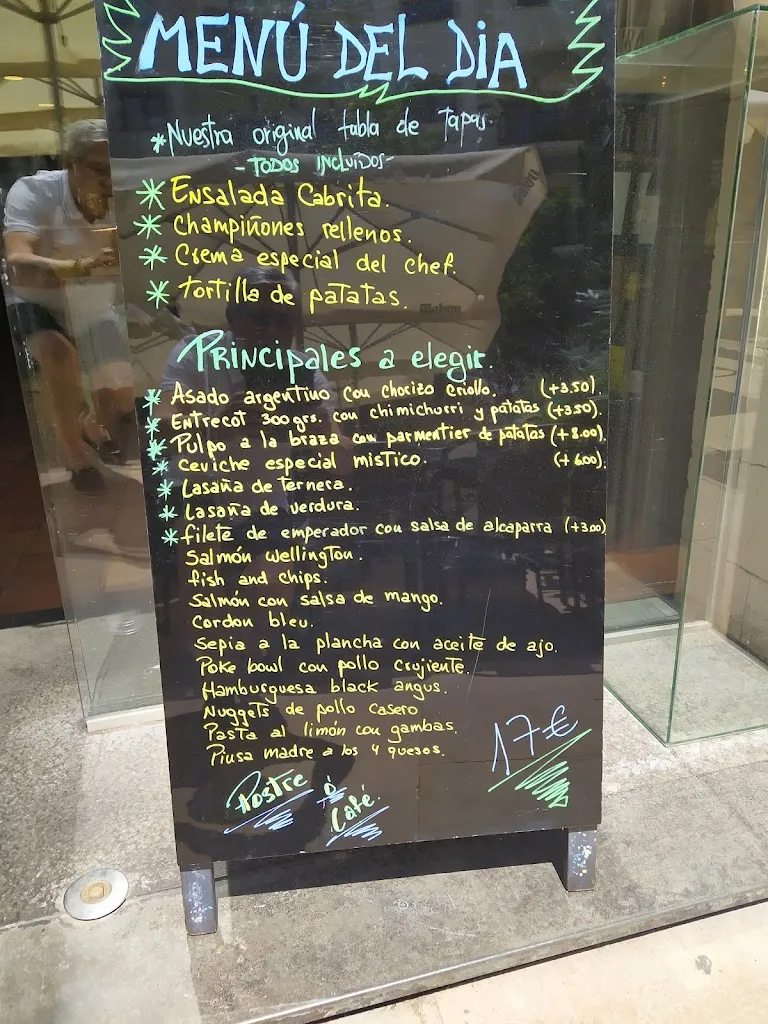 MENÚ DEL DIA
*Nuestra original tabla de Tapas.
-TODOS INCLUIDOS-
* Ensalada Cabrita.
* Champiñones rellenos.
* Crema especial del chef.
* tortilla de patatas.
Principales a elegir.
* Asado argentino con chorizo criollo. (+3.50).
* Entrecot 300grs. con chimichurri y patatas (+3.50).
* Pulpo a la braza con parmentier de patatas (+8.00).
* ceviche especial mistico. (+6.00).
* Lasaña de ternera.
* Lasaña de verdura.
* filete de emperador con salsa de alcaparra (+3.00)
Salmón wellington.
fish and chips.
Salmón con salsa de mango.
Cordon bleu.
Sepia a la plancha con aceite de ajo.
Poke bowl con pollo crujiente.
Hamburguesa black angus.
Nuggets de pollo casero
Pasta al limón con gambas.
Pinsa madre a los 4 quesos.
17€
Postre ó Café.